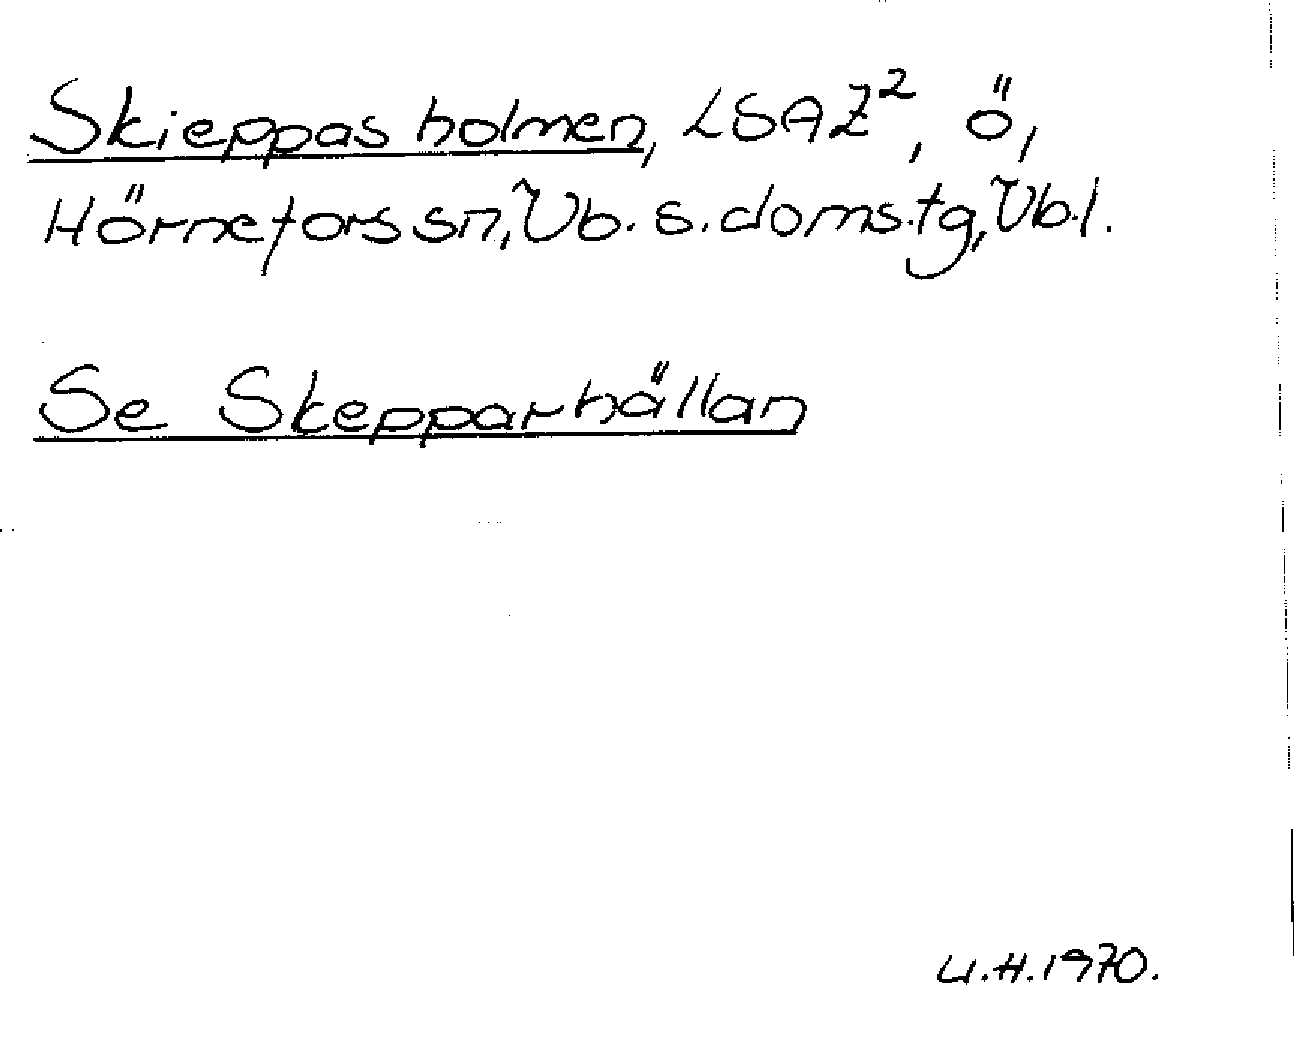 Skieppas holmen, LSAZ², ö,
Hörnefors sn, Vb. s. doms.tg, Vb.l.
Se Skepparhällan
U.H.1970.